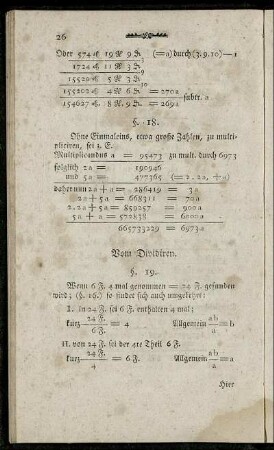 26
Oder 574 ℔. 19 ℞ 9 ₰. (=a) durch (3.9.10)—1
3
1724 ℔. 11 ℞ 3 ₰.
9
15520 ℔. 5 ℞ 3 ₰.
10
155202 ℔. 4 ℞. 6 ₰. = 270a
subtr. a
154627 ℔. 8 ℞. 9 ₰. = 269a
§. 18.
Ohne Einmaleins, etwa große Zahlen, zu multi-
pliciren, sei z. E.
Multiplicandus a = 95473 zu mult. durch 6973
folglich 2a = 190946
und 5a = 477365 (=2.2a, +a)
daher nun 2a+a = 286419 = 3a
2a+5a = 668311 = 70a
2.2a+5a = 859257 = 900a
5a+a = 572838 = 6000a
665733229 = 6973a
Vom Dividiren.
§. 19.
Wenn 6 F. 4 mal genommen = 24 F. gefunden
wird; (§. 16.) so findet sich auch umgekehrt:
I. in 24 F. sei 6 F. enthalten 4 mal;
kurz 24 F./6 F. = 4 Allgemein ab/a = b
II. von 24 F. sei der 4te Theil 6 F.
kurz 24 F./4 = 6 F. Allgemein ab/b = a
Hier